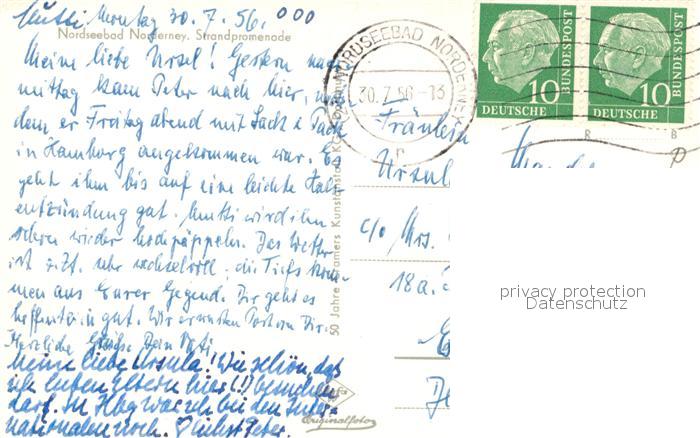 Mutti, Montag 30.7.56. 000
Nordseebad Norderney. Strandpromenade
Meine liebe Ursel! Gestern nach-
mittag kam Peter nach hier, nach-
dem er Freitag abend mit Sack & Pack
in Hamburg angekommen war. Es
geht ihm bis auf eine leichte Hals-
entzündung gut. Mutti wird ihn
schon wieder hochpäppeln. Das Wetter
ist z.Zt. sehr wechselvoll, die Tiefs kom-
men aus Eurer Gegend. Dir geht es
hoffentlich gut. Wir erwarten Post von Dir.
Herzliche Grüße Dein Vati
Meine liebe Ursula! Wie schön, daß
ich lieben Eltern hier (!) besuchen
darf. In Hbg war ich bei den Inter-
nationalen noch. Peter.
50 Jahre Cramers Kunstanstalt
Originalfoto
NORDSEEBAD NORDERNEY
30.7.56-13
n
DEUTSCHE BUNDESPOST 10
DEUTSCHE BUNDESPOST 10
R
B
Fräulein
Ursul
c/o Mrs.
18a.
privacy protection
Datenschutz